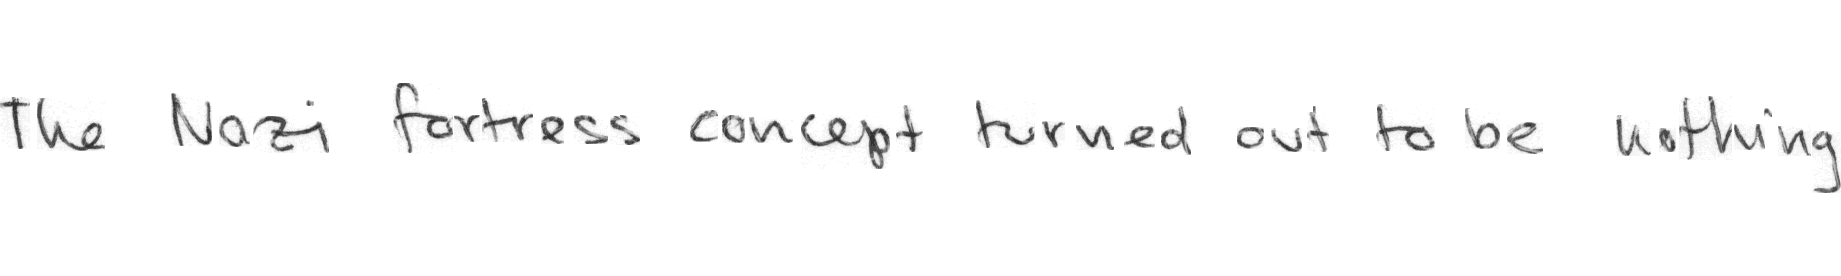 The Nazi fortress concept turned out to be nothing